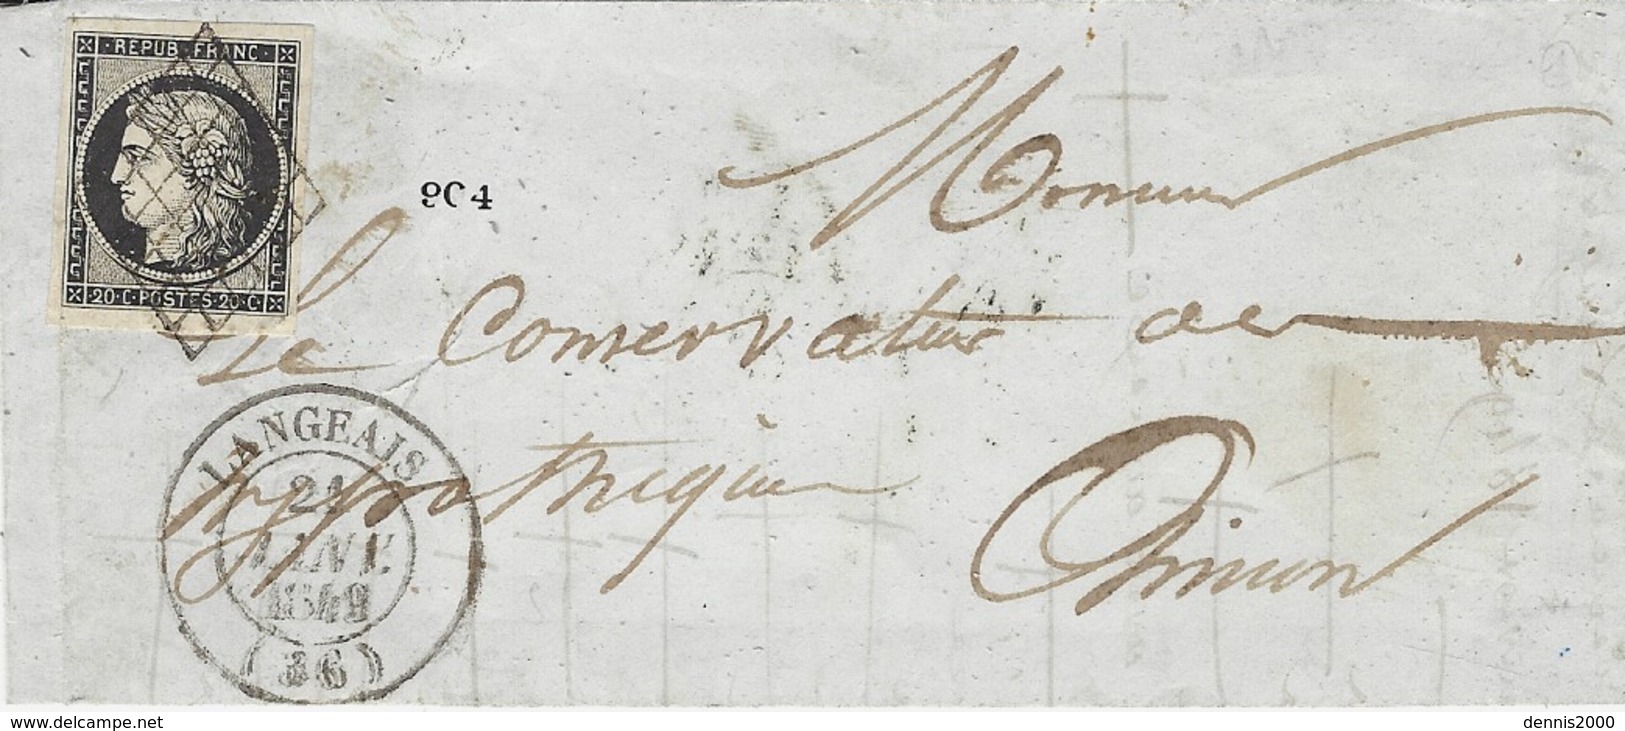 REPUB·FRANC·
·20·C·POSTES·20·C·
904
Monsieur
Le Conservateur des
hypothèques
Chinon
LANGEAIS
21
JANV.
1849
(36)
www.delcampe.net
dennis2000